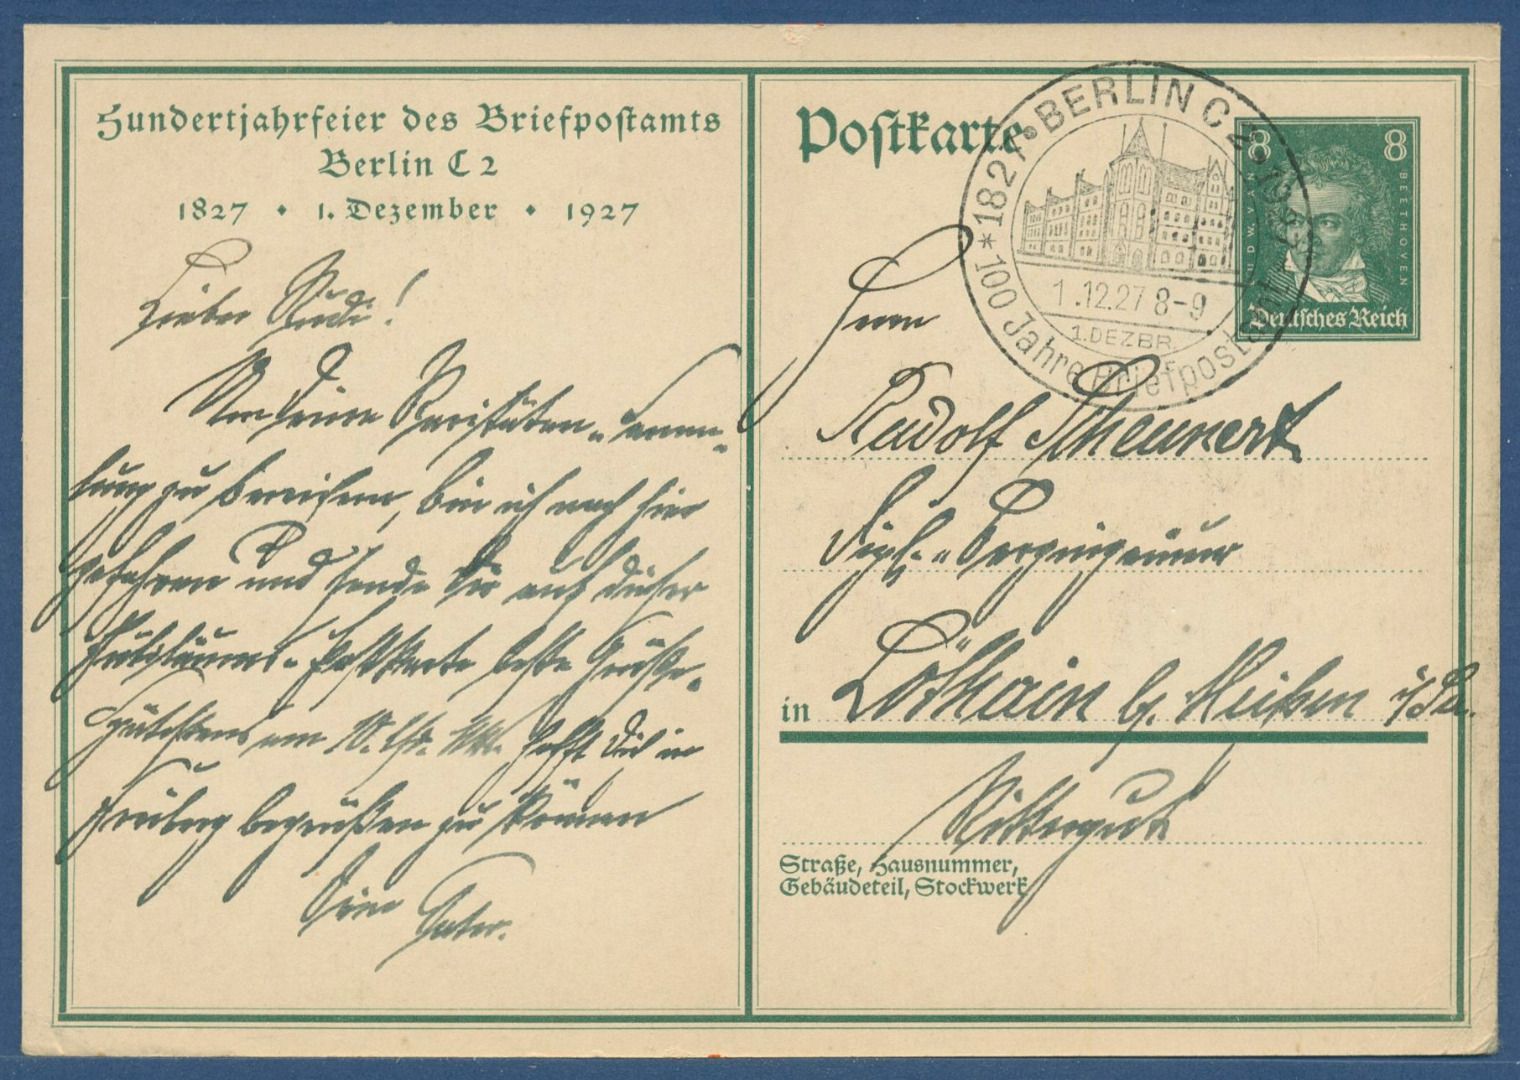 Hundertjahrfeier des Briefpostamts
Berlin C 2
1827 • 1. Dezember • 1927
Lieber Rudi!
Um Deine Raritäten-Samm-
lung zu bereichern, bin ich nach hier
gefahren und sende Dir auf dieser
Jubiläums-Postkarte beste Grüße.
Spätestens am 10. hofft Dich in
Freiberg begrüßen zu können
Dein Vater.
Postkarte
*1827•BERLIN C 2•1927*
1.12.27 8-9
1.DEZBR.
100 Jahre Briefpostamt
8 8
LUDW. VAN
BEETHOVEN
Deutsches Reich
Herrn
Rudolf Scheunert
Dipl.-Bergingenieur
in Löthain b. Meißen i/Sa.
Rittergut
Straße, Hausnummer,
Gebäudeteil, Stockwerk